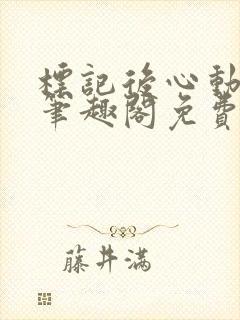 標記後心動
筆趣閣免費
藤井滿